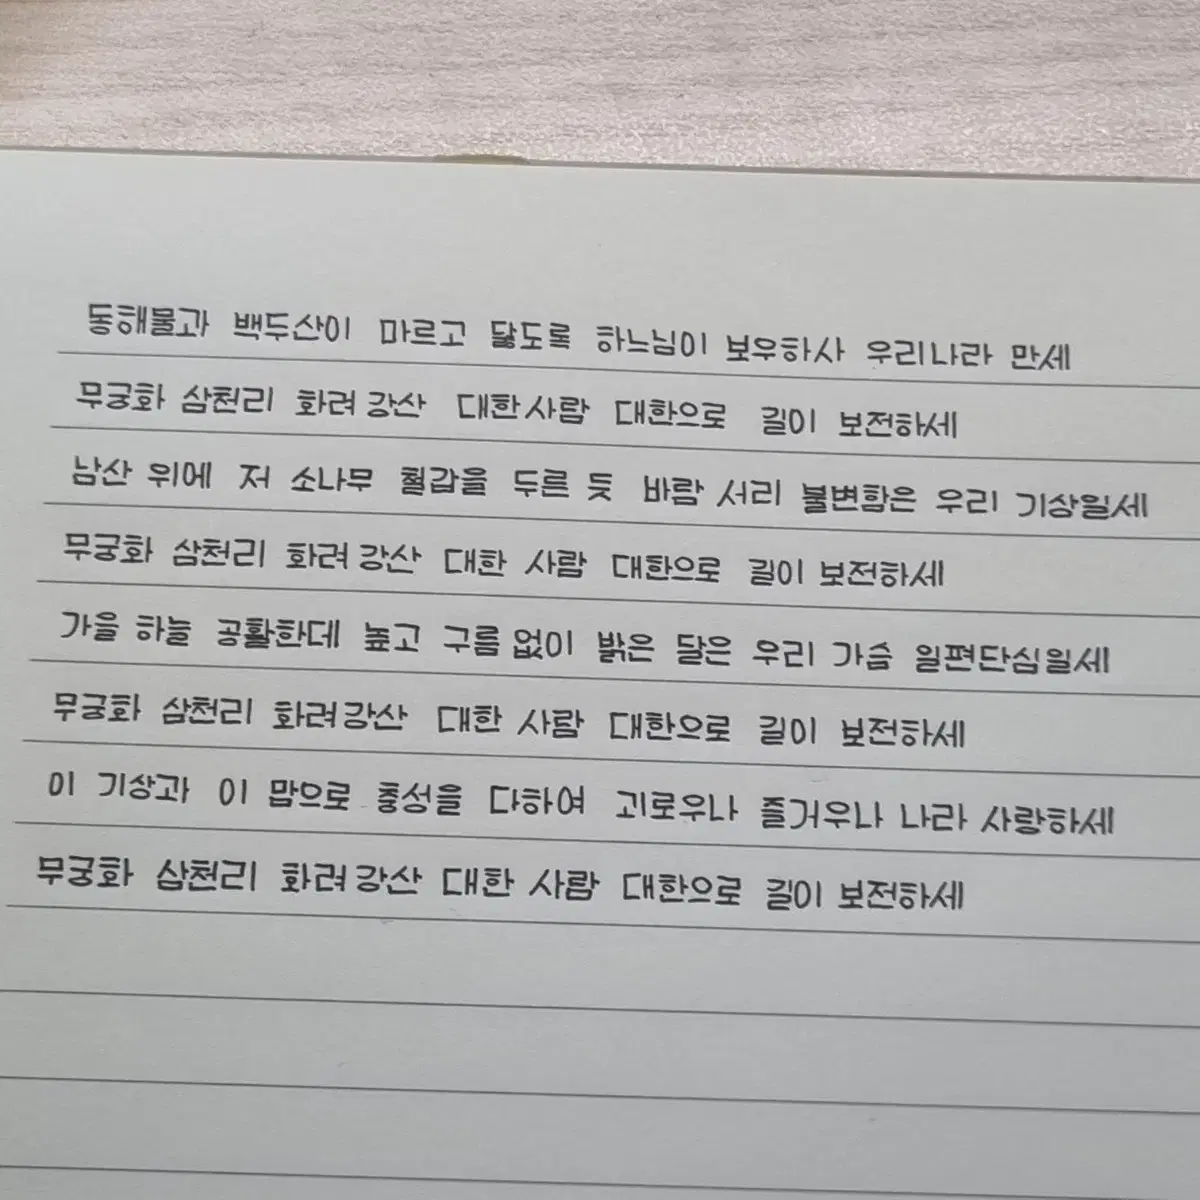 동해물과 백두산이 마르고 닳도록 하느님이 보우하사 우리나라 만세
무궁화 삼천리 화려강산 대한사람 대한으로 길이 보전하세
남산 위에 저 소나무 철갑을 두른 듯 바람 서리 불변함은 우리 기상일세
무궁화 삼천리 화려강산 대한 사람 대한으로 길이 보전하세
가을 하늘 공활한데 높고 구름 없이 밝은 달은 우리 가슴 일편단심일세
무궁화 삼천리 화려강산 대한 사람 대한으로 길이 보전하세
이 기상과 이 맘으로 충성을 다하여 괴로우나 즐거우나 나라 사랑하세
무궁화 삼천리 화려강산 대한 사람 대한으로 길이 보전하세